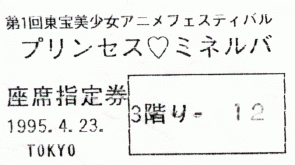 第1回東宝美少女アニメフェスティバル
プリンセス♡ミネルバ
座席指定券
3階り- 12
1995.4.23.
TOKYO